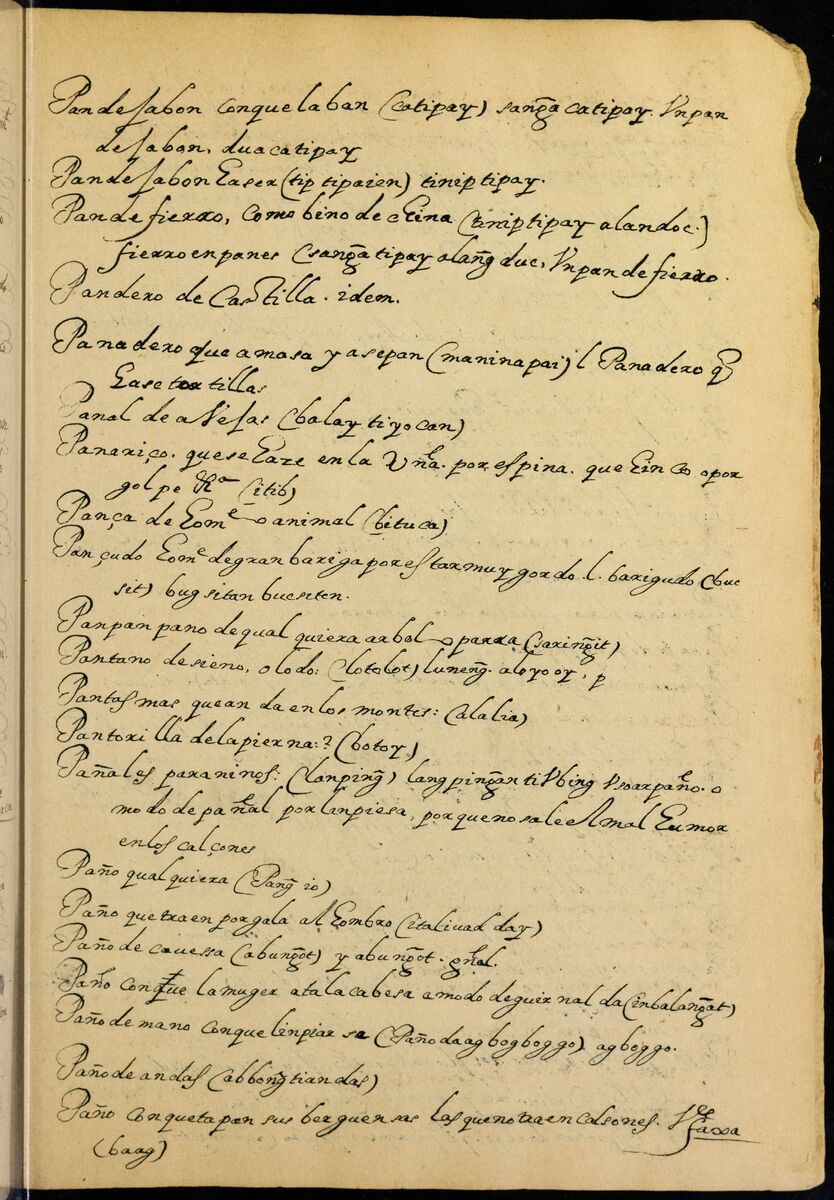 Pan de jabon con que laban (catipay) sang̃a catipay. Vn pan
de jabon, dua catipay
Pan de jabon haser (tip tipaien) tiniptipay.
Pan de fierro, como bino de china (tiniptipay alandoc.)
fierro en panes (sang̃a tipay alang̃ duc, Vn pan de fierro.
Pandero de Castilla. idem.
Panadero que amasa y ase pan (maninapai) l Panadero q̃
hase tortillas
Panal de avejas (balay ti yocan)
Panariço. que se haze en la Vña. por espina. que hinco o por
golpe (itib)
Pança de home o animal (bituca)
Pançudo home de gran bariga por estar muy gordo. l. barigudo (buc
sit) bugsitan bucsiten.
Panpanpano de qual quiera arbol o parra (saring̃it)
Pantano de sieno, o lodo: (lotolot) luneng̃. aloyoy,
Pantasmas que andan en los montes: (alalia)
Pantorilla de la pierna:? (botoy)
Pañales para ninos: (lanping̃) langping̃an ti Vbing Vsar paño. o
modo de pañal por linpiesa, porque no sale el mal humor
en los calçones
Paño qual quiera (Pang̃io)
Paño que traen por gala al hombro (italivad day)
Paño de cavessa (abung̃ot) y abung̃ot. gñal.
Paño con que la muger ata la cabesa a modo de guirnalda (inbalang̃at)
Paño de mano con que linpiarsa (Paño da agbogboggo) agboggo.
Paño de andas (abbong̃ ti andas)
Paño con que tapan sus berguensas las que no traen calsones. Ves faxa
(baag)